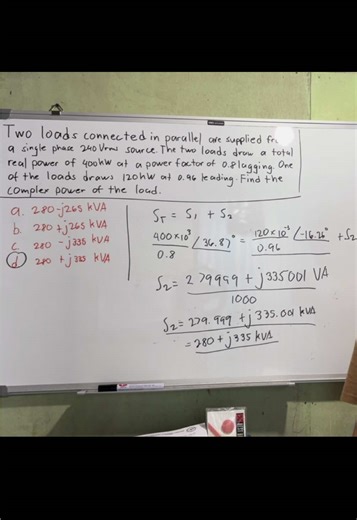 Two loads connected in parallel are supplied
a single phase 240 Vrms source. The two loads draw a total
real power of 400kW at a power factor of 0.8 lagging. One
of the loads draws 120kW at 0.96 leading. Find the
complex power of the load.
a. 280 - j265 kVA
b. 280 + j265 kVA
c. 280 - j335 kVA
d. 280 + j335 kVA
ST = S1 + S2
400 x 10³ / 0.8 ∠36.87° = 120 x 10⁻³ / 0.96 ∠-16.26° + S2
S2 = 279999 + j335001 VA
1000
S2 = 279.999 + j335.001 kVA
= 280 + j335 kVA